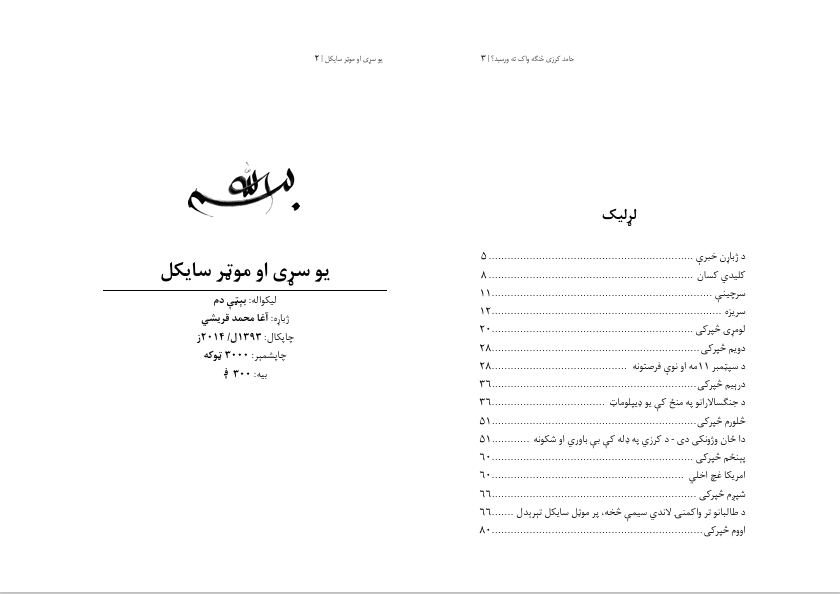 یو سړی او موټر سایکل | ۲
بسم الله
یو سړی او موټر سایکل
لیکواله: بېټي دم
ژباړه: آغا محمد قریشي
چاپکال: ۱۳۹۳ل/ ۲۰۱۴ز
چاپشمېر: ۳۰۰۰ ټوکه
بیه: ۳۰۰ ؋
حامد کرزی څنګه واک ته ورسېد؟ | ۳
لړلیک
د ژباړن خبرې ........ ۵
کلیدي کسان ........ ۸
سرچینې ........ ۱۱
سریزه ........ ۱۲
لومړی څپرکی ........ ۲۰
دویم څپرکی ........ ۲۸
د سپټمبر ۱۱مه او نوي فرصتونه ........ ۲۸
درېیم څپرکی ........ ۳۶
د جنګسالارانو په منځ کې یو ډیپلوماټ ........ ۳۶
څلورم څپرکی ........ ۵۱
دا ځان وژونکی دی - د کرزي په ډله کې بې باوري او شکونه ........ ۵۱
پینځم څپرکی ........ ۶۰
امریکا غچ اخلي ........ ۶۰
شپږم څپرکی ........ ۶۶
د طالبانو تر واکمنۍ لاندې سیمې څخه، پر موټل سایکل تېرېدل ....... ۶۶
اووم څپرکی ........ ۸۰